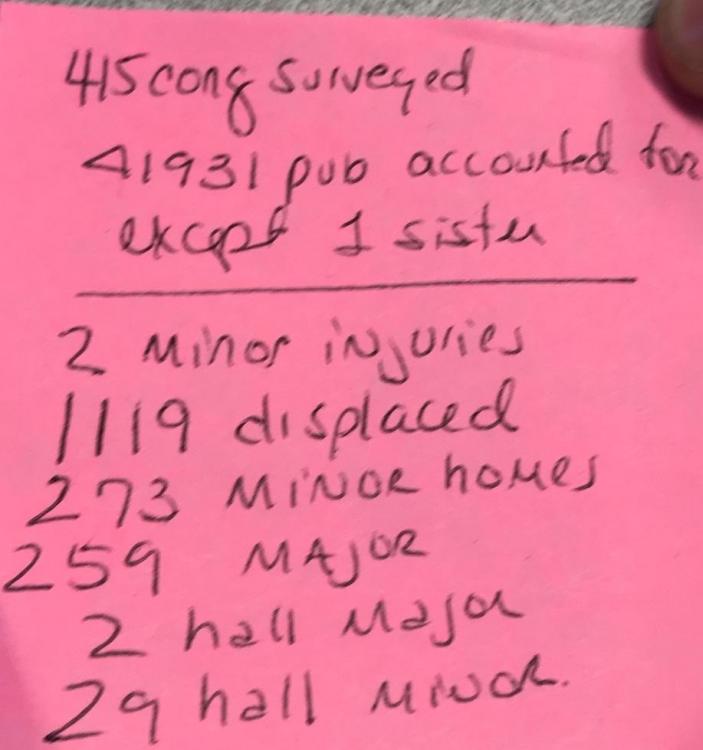 415 cong surveyed
41931 pub accounted for
except 1 sister
2 Minor injuries
1119 displaced
273 MINOR homes
259 MAJOR
2 hall Major
29 hall MINOR.